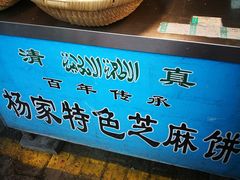 清 真
百年传承
杨家特色芝麻饼